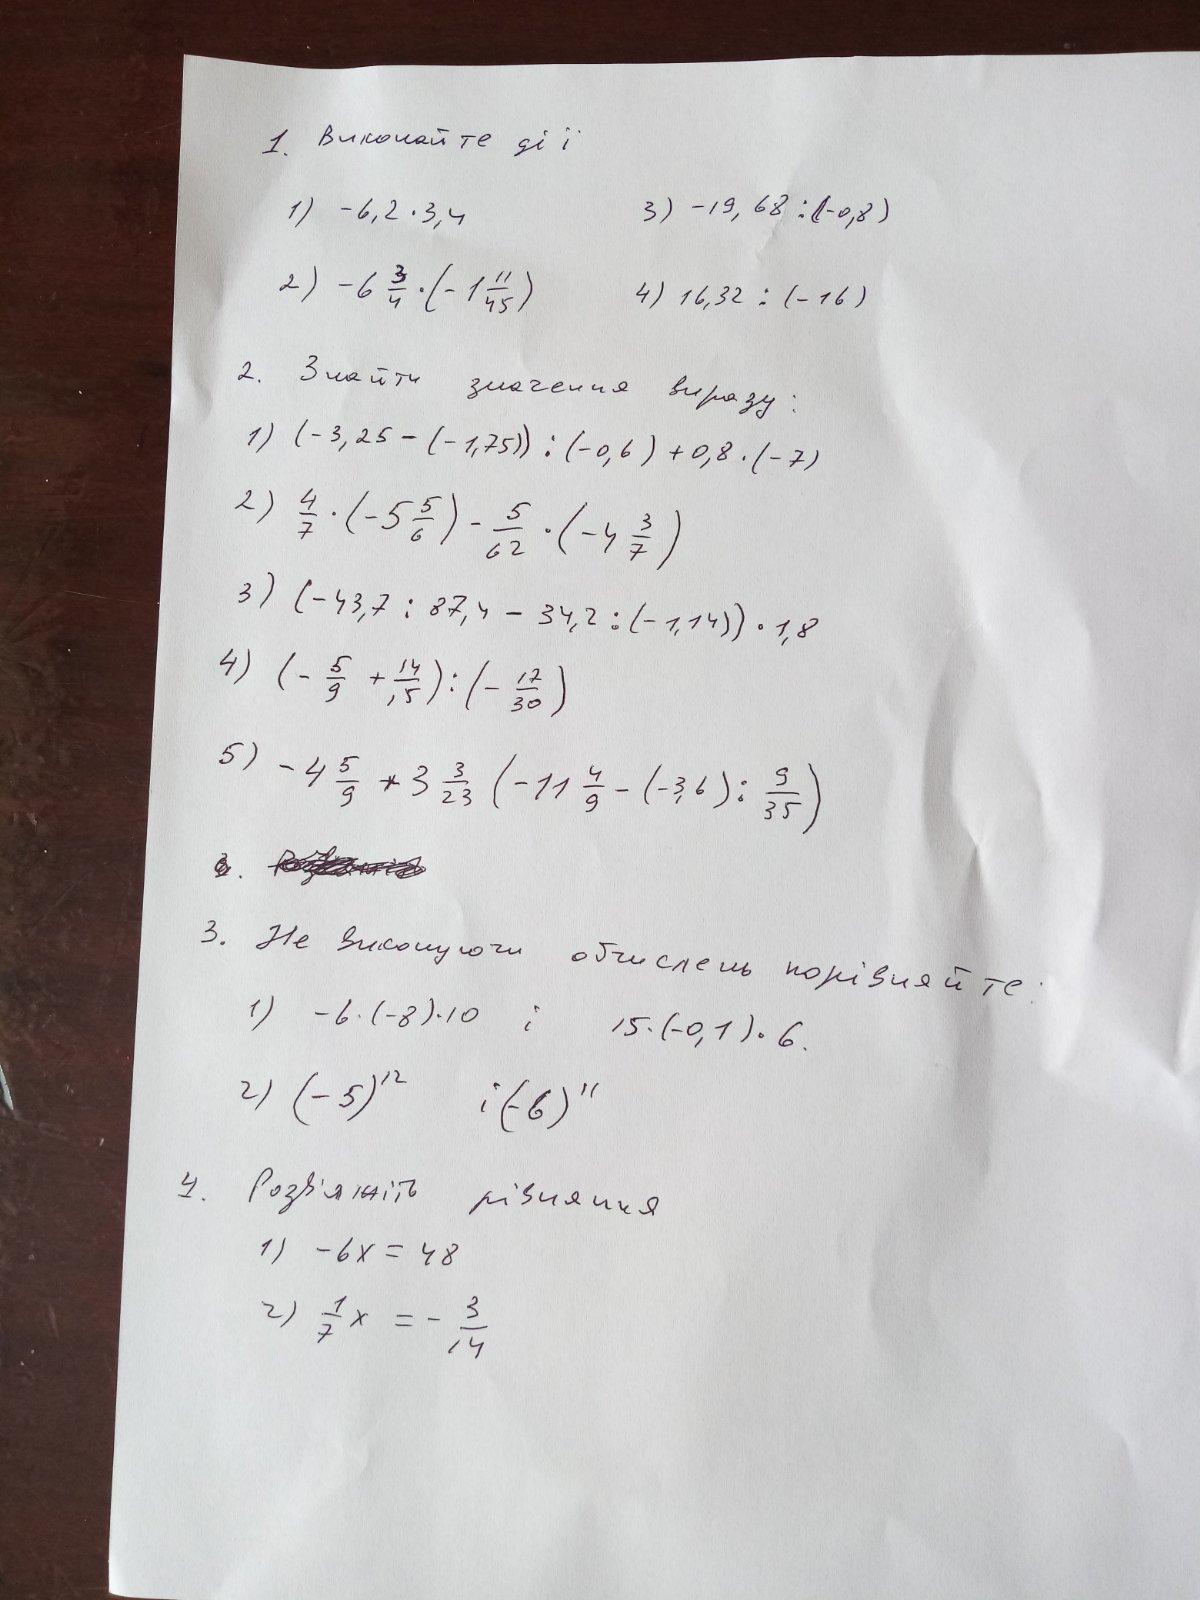 1. Виконайте дії
1) -6,2·3,4 3) -19,68:(-0,8)
2) -6 3/4·(-1 11/45) 4) 16,32:(-16)
2. Знайти значення виразу:
1) (-3,25-(-1,75)):(-0,6)+0,8·(-7)
2) 4/7·(-5 5/6)-5/62·(-4 3/7)
3) (-43,7:87,4-34,2:(-1,14))·1,8
4) (-5/9+14/15):(-17/30)
5) -4 5/9+3 3/23(-11 4/9-(-3,6):9/35)
3. Не виконуючи обчислень порівняйте:
1) -6·(-8)·10 і 15·(-0,1)·6.
2) (-5)^12 і (-6)^11
4. Розв'яжіть рівняння
1) -6x=48
2) 1/7x=-3/14